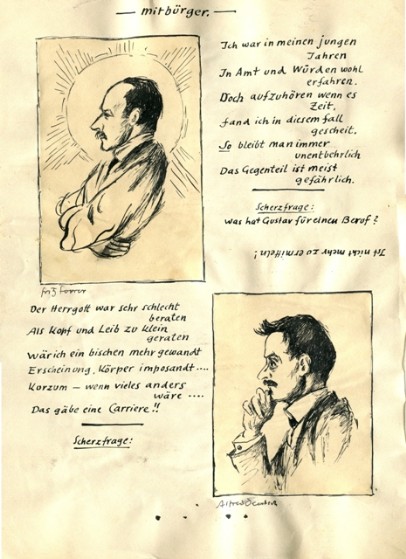 — mitbürger. —
Ich war in meinen jungen
Jahren
In Amt und Würden wohl
erfahren.
Doch aufzuhören wenn es
Zeit,
fand ich in diesem fall
gescheit.
So bleibt man immer
unentbehrlich
Das Gegenteil ist meist
gefährlich.
Scherzfrage:
was hat Gustav für einen Beruf?
Ist nicht mehr zu ermitteln!
Der Herrgott war sehr schlecht
beraten
Als Kopf und Leib zu klein
geraten
wär ich ein bischen mehr gewandt
Erscheinung, Körper imposant....
Korzum — wenn vieles anders
wäre ....
Das gäbe eine Carriere!!
Scherzfrage:
Alfred